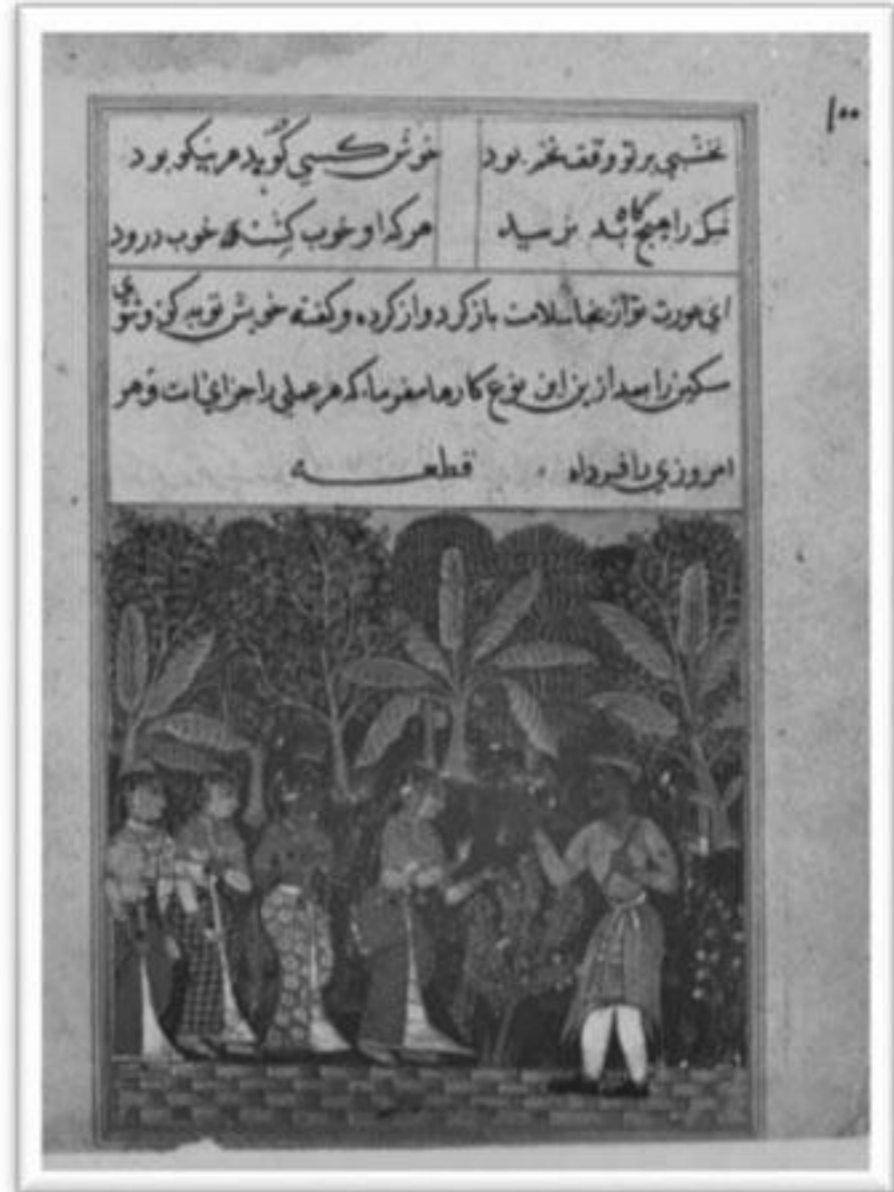 ۱۰۰
نخشبی بر تو وقف نغز بود خوش کسی کو بدهر نیکو بود
نیک را هیچ گاه بد نرسید هر که او خوب کشت خوب درود
ای عورت تو از سلامت باز کرد و از کرده و گفته خویش توبه کن و شوی
سکین را بعد ازین این نوع کارها مفرما، که هر عملی را جزای است و هر
امروزی را فردا قطعه